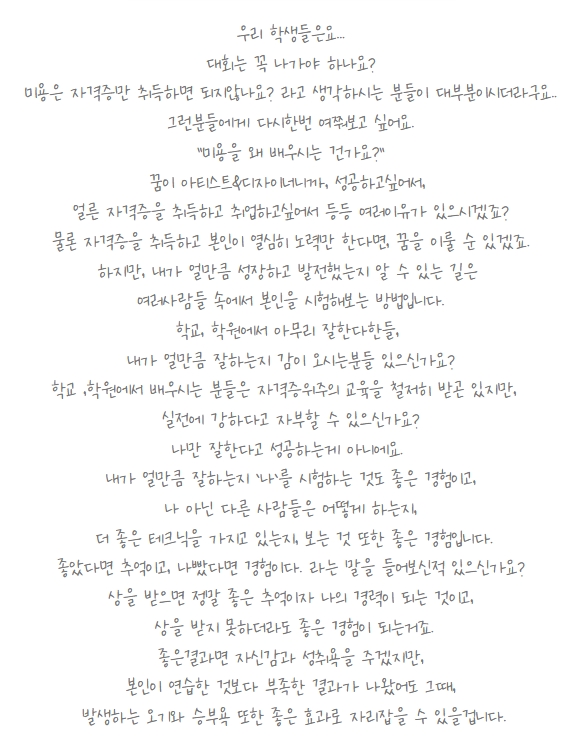 우리 학생들은요...
대회는 꼭 나가야 하나요?
미용은 자격증만 취득하면 되지않나요? 라고 생각하시는 분들이 대부분이시더라구요..
그런분들에게 다시한번 여쭤보고 싶어요.
"미용을 왜 배우시는 건가요?"
꿈이 아티스트&디자이너니까, 성공하고싶어서,
얼른 자격증을 취득하고 취업하고싶어서 등등 여러이유가 있으시겠죠?
물론 자격증을 취득하고 본인이 열심히 노력만 한다면, 꿈을 이룰 순 있겠죠.
하지만, 내가 얼만큼 성장하고 발전했는지 알 수 있는 길은
여러사람들 속에서 본인을 시험해보는 방법입니다.
학교, 학원에서 아무리 잘한다한들,
내가 얼만큼 잘하는지 감이 오시는분들 있으신가요?
학교 ,학원에서 배우시는 분들은 자격증위주의 교육을 철저히 받곤 있지만,
실전에 강하다고 자부할 수 있으신가요?
나만 잘한다고 성공하는게 아니에요.
내가 얼만큼 잘하는지 '나'를 시험하는 것도 좋은 경험이고,
나 아닌 다른 사람들은 어떻게 하는지,
더 좋은 테크닉을 가지고 있는지, 보는 것 또한 좋은 경험입니다.
좋았다면 추억이고, 나빴다면 경험이다. 라는 말을 들어보신적 있으신가요?
상을 받으면 정말 좋은 추억이자 나의 경력이 되는 것이고,
상을 받지 못하더라도 좋은 경험이 되는거죠.
좋은결과면 자신감과 성취욕을 주겠지만,
본인이 연습한 것보다 부족한 결과가 나왔어도 그때,
발생하는 오기와 승부욕 또한 좋은 효과로 자리잡을 수 있을겁니다.